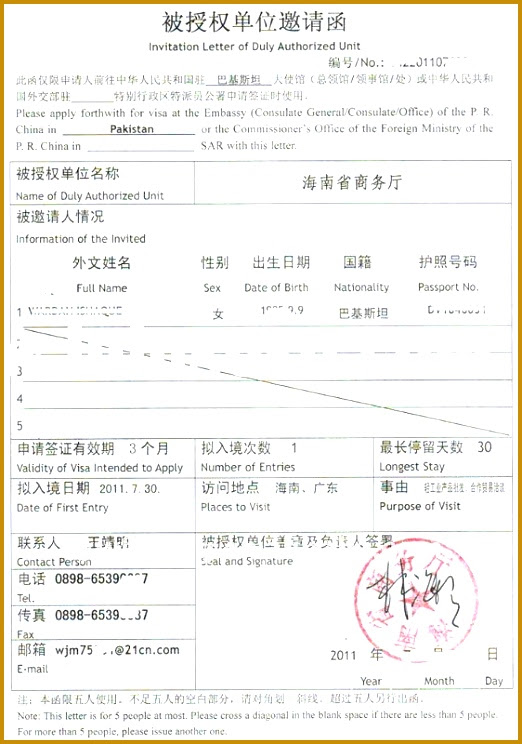 被授权单位邀请函
Invitation Letter of Duly Authorized Unit
编号/No.:
此函仅限申请人前往中华人民共和国驻 巴基斯坦 大使馆(总领馆/领事馆/处)或中华人民共和
国外交部驻 特别行政区特派员公署申请签证时使用。
Please apply forthwith for visa at the Embassy (Consulate General/Consulate/Office) of the P. R.
China in Pakistan or the Commissioner's Office of the Foreign Ministry of the
P. R. China in SAR with this letter.
被授权单位名称 海南省商务厅
Name of Duly Authorized Unit
被邀请人情况
Information of the Invited
外文姓名 性别 出生日期 国籍 护照号码
Full Name Sex Date of Birth Nationality Passport No.
1 女 巴基斯坦
2
3
4
5
申请签证有效期 3 个月 拟入境次数 1 最长停留天数 30
Validity of Visa Intended to Apply Number of Entries Longest Stay
拟入境日期 2011.7.30. 访问地点 海南、广东 事由
Date of First Entry Places to Visit Purpose of Visit
联系人 被授权单位盖章及负责人签署
Contact Person Seal and Signature
电话 0898-6539
Tel.
传真 0898-6539
Fax
邮箱 wjm75 @21cn.com
E-mail
2011 年 日
Year Month Day
注:本函限五人使用。不足五人的空白部分,请对角划一斜线。超过五人另行出函。
Note: This letter is for 5 people at most. Please cross a diagonal in the blank space if there are less than 5 people.
For more than 5 people, please issue another one.